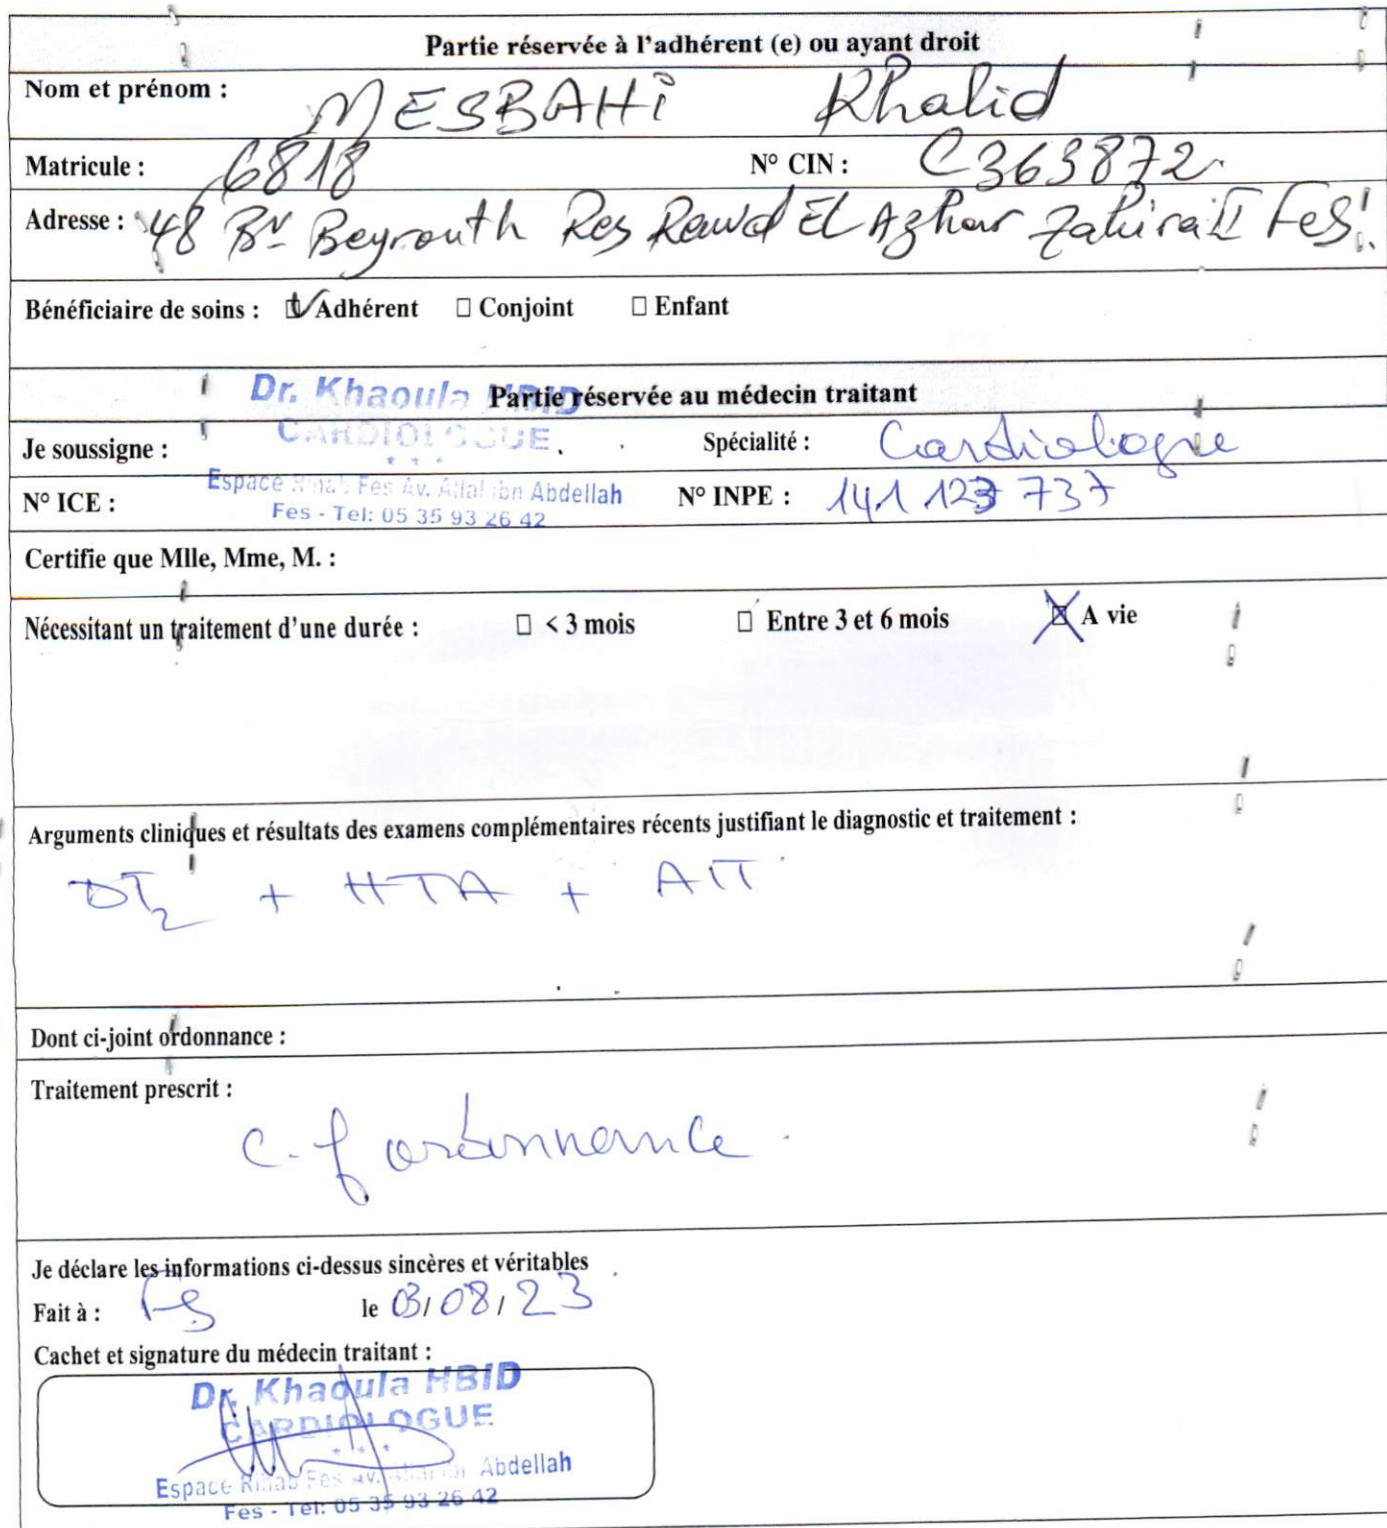 Partie réservée à l'adhérent (e) ou ayant droit
Nom et prénom : MESBAHi Khalid
Matricule : 6818 N° CIN : C363872
Adresse : 48 Bv Beyrouth Res Rawd El Azhar Zahira II FeS
Bénéficiaire de soins : ☑ Adhérent □ Conjoint □ Enfant
Dr. Khaoula HBID Partie réservée au médecin traitant
CARDIOLOGUE
Je soussigne : Spécialité : Cardiologue
Espace Rihab Fes Av. Allal ibn Abdellah
N° ICE : N° INPE : 141 123 737
Fes - Tel: 05 35 93 26 42
Certifie que Mlle, Mme, M. :
Nécessitant un traitement d'une durée : □ < 3 mois □ Entre 3 et 6 mois ☒ A vie
Arguments cliniques et résultats des examens complémentaires récents justifiant le diagnostic et traitement :
DT2 + HTA + AIT
Dont ci-joint ordonnance :
Traitement prescrit :
c.f ordonnance
Je déclare les informations ci-dessus sincères et véritables
Fait à : Fes le 03/08/23
Cachet et signature du médecin traitant :
Dr. Khaoula HBID
CARDIOLOGUE
* * *
Espace Rihab Fes Av. Allal ibn Abdellah
Fes - Tel: 05 35 93 26 42